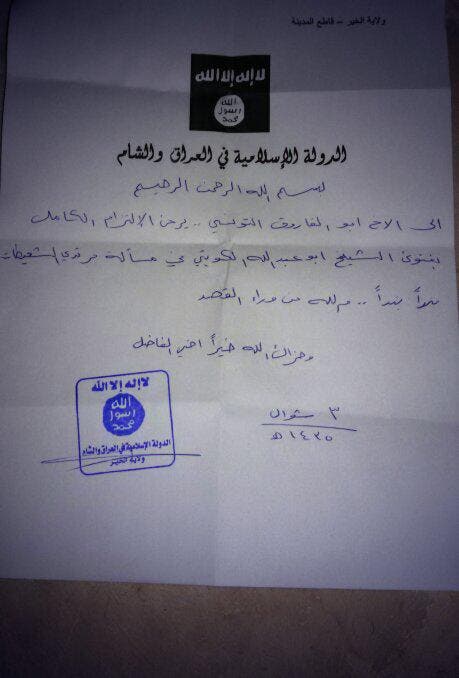 ولاية الخير – قاطع المدينة
لا إله إلا الله
الله
رسول
محمد
الدولة الإسلامية في العراق والشام
بسم الله الرحمن الرحيم
الى الاخ ابو الفاروق التونسي .. يرجى الالتزام الكامل
بفتوى الشيخ ابو عبدالله الكويتي في مسألة مرتدي الشعيطات
بنداً بنداً .. والله من وراء القصد
وجزاك الله خيراً اخي الفاضل
٣ شوال
١٤٣٥ هـ
لا إله إلا الله
الله
رسول
محمد
الدولة الإسلامية في العراق والشام
ولاية الخير